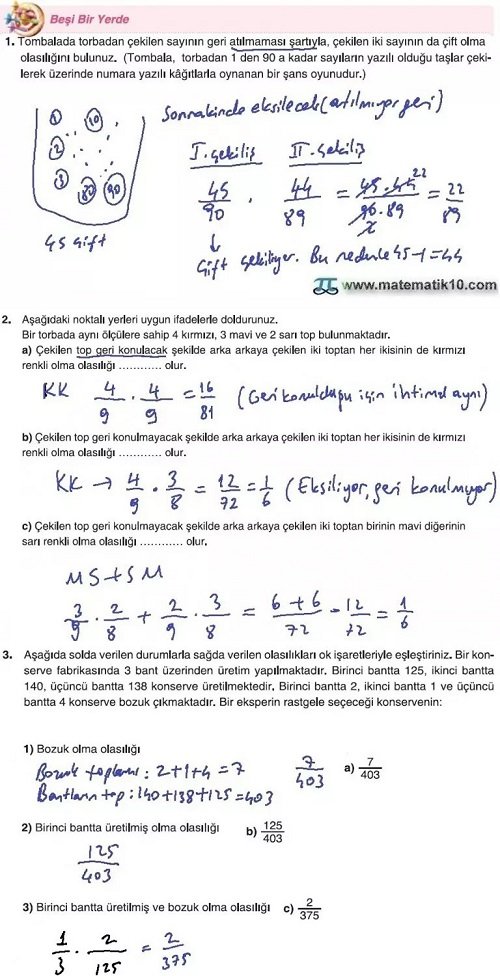 Beşi Bir Yerde
1. Tombalada torbadan çekilen sayının geri atılmaması şartıyla, çekilen iki sayının da çift olma
olasılığını bulunuz. (Tombala, torbadan 1 den 90 a kadar sayıların yazılı olduğu taşlar çeki-
lerek üzerinde numara yazılı kâğıtlarla oynanan bir şans oyunudur.)
Sonrakinde eksilecek (atılmıyor geri)
1 10
2
3 80 90
45 çift
I. çekiliş II. çekiliş
45/90 . 44/89 = 45.44/90.89 = 22/89
22
2
Çift çekiliyor. Bu nedenle 45-1=44
www.matematik10.com
2. Aşağıdaki noktalı yerleri uygun ifadelerle doldurunuz.
Bir torbada aynı ölçülere sahip 4 kırmızı, 3 mavi ve 2 sarı top bulunmaktadır.
a) Çekilen top geri konulacak şekilde arka arkaya çekilen iki toptan her ikisinin de kırmızı
renkli olma olasılığı ............ olur.
KK 4/9 . 4/9 = 16/81 (Geri konulduğu için ihtimal aynı)
b) Çekilen top geri konulmayacak şekilde arka arkaya çekilen iki toptan her ikisinin de kırmızı
renkli olma olasılığı ............ olur.
KK → 4/9 . 3/8 = 12/72 = 1/6 (Eksiliyor, geri konulmıyor)
c) Çekilen top geri konulmayacak şekilde arka arkaya çekilen iki toptan birinin mavi diğerinin
sarı renkli olma olasılığı ............ olur.
MS+SM
3/9 . 2/8 + 2/9 . 3/8 = 6+6/72 = 12/72 = 1/6
3. Aşağıda solda verilen durumlarla sağda verilen olasılıkları ok işaretleriyle eşleştiriniz. Bir kon-
serve fabrikasında 3 bant üzerinden üretim yapılmaktadır. Birinci bantta 125, ikinci bantta
140, üçüncü bantta 138 konserve üretilmektedir. Birinci bantta 2, ikinci bantta 1 ve üçüncü
bantta 4 konserve bozuk çıkmaktadır. Bir eksperin rastgele seçeceği konservenin:
1) Bozuk olma olasılığı
Bozuk toplamı: 2+1+4=7 7/403 a) 7/403
Bantların top: 140+138+125=403
2) Birinci bantta üretilmiş olma olasılığı b) 125/403
125/403
3) Birinci bantta üretilmiş ve bozuk olma olasılığı c) 2/375
1/3 . 2/125 = 2/375